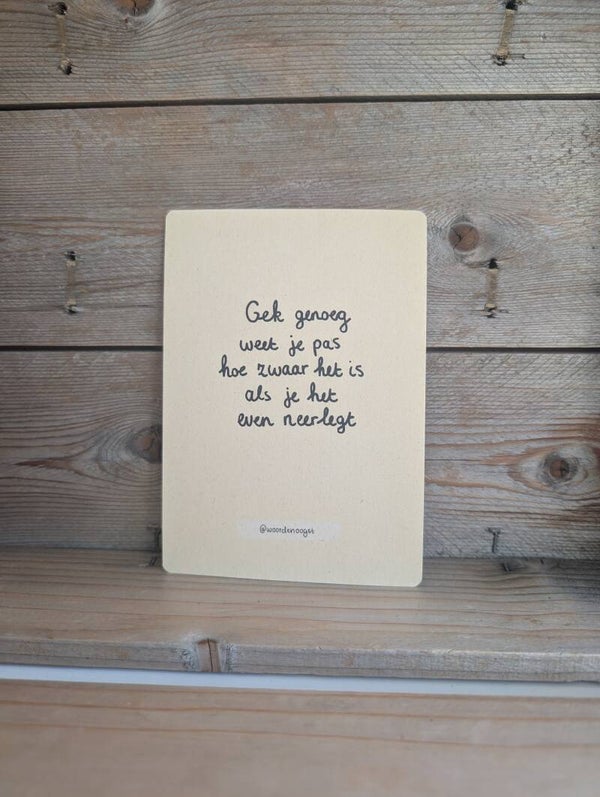 Gek genoeg
weet je pas
hoe zwaar het is
als je het
even neerlegt
@woordenoogst